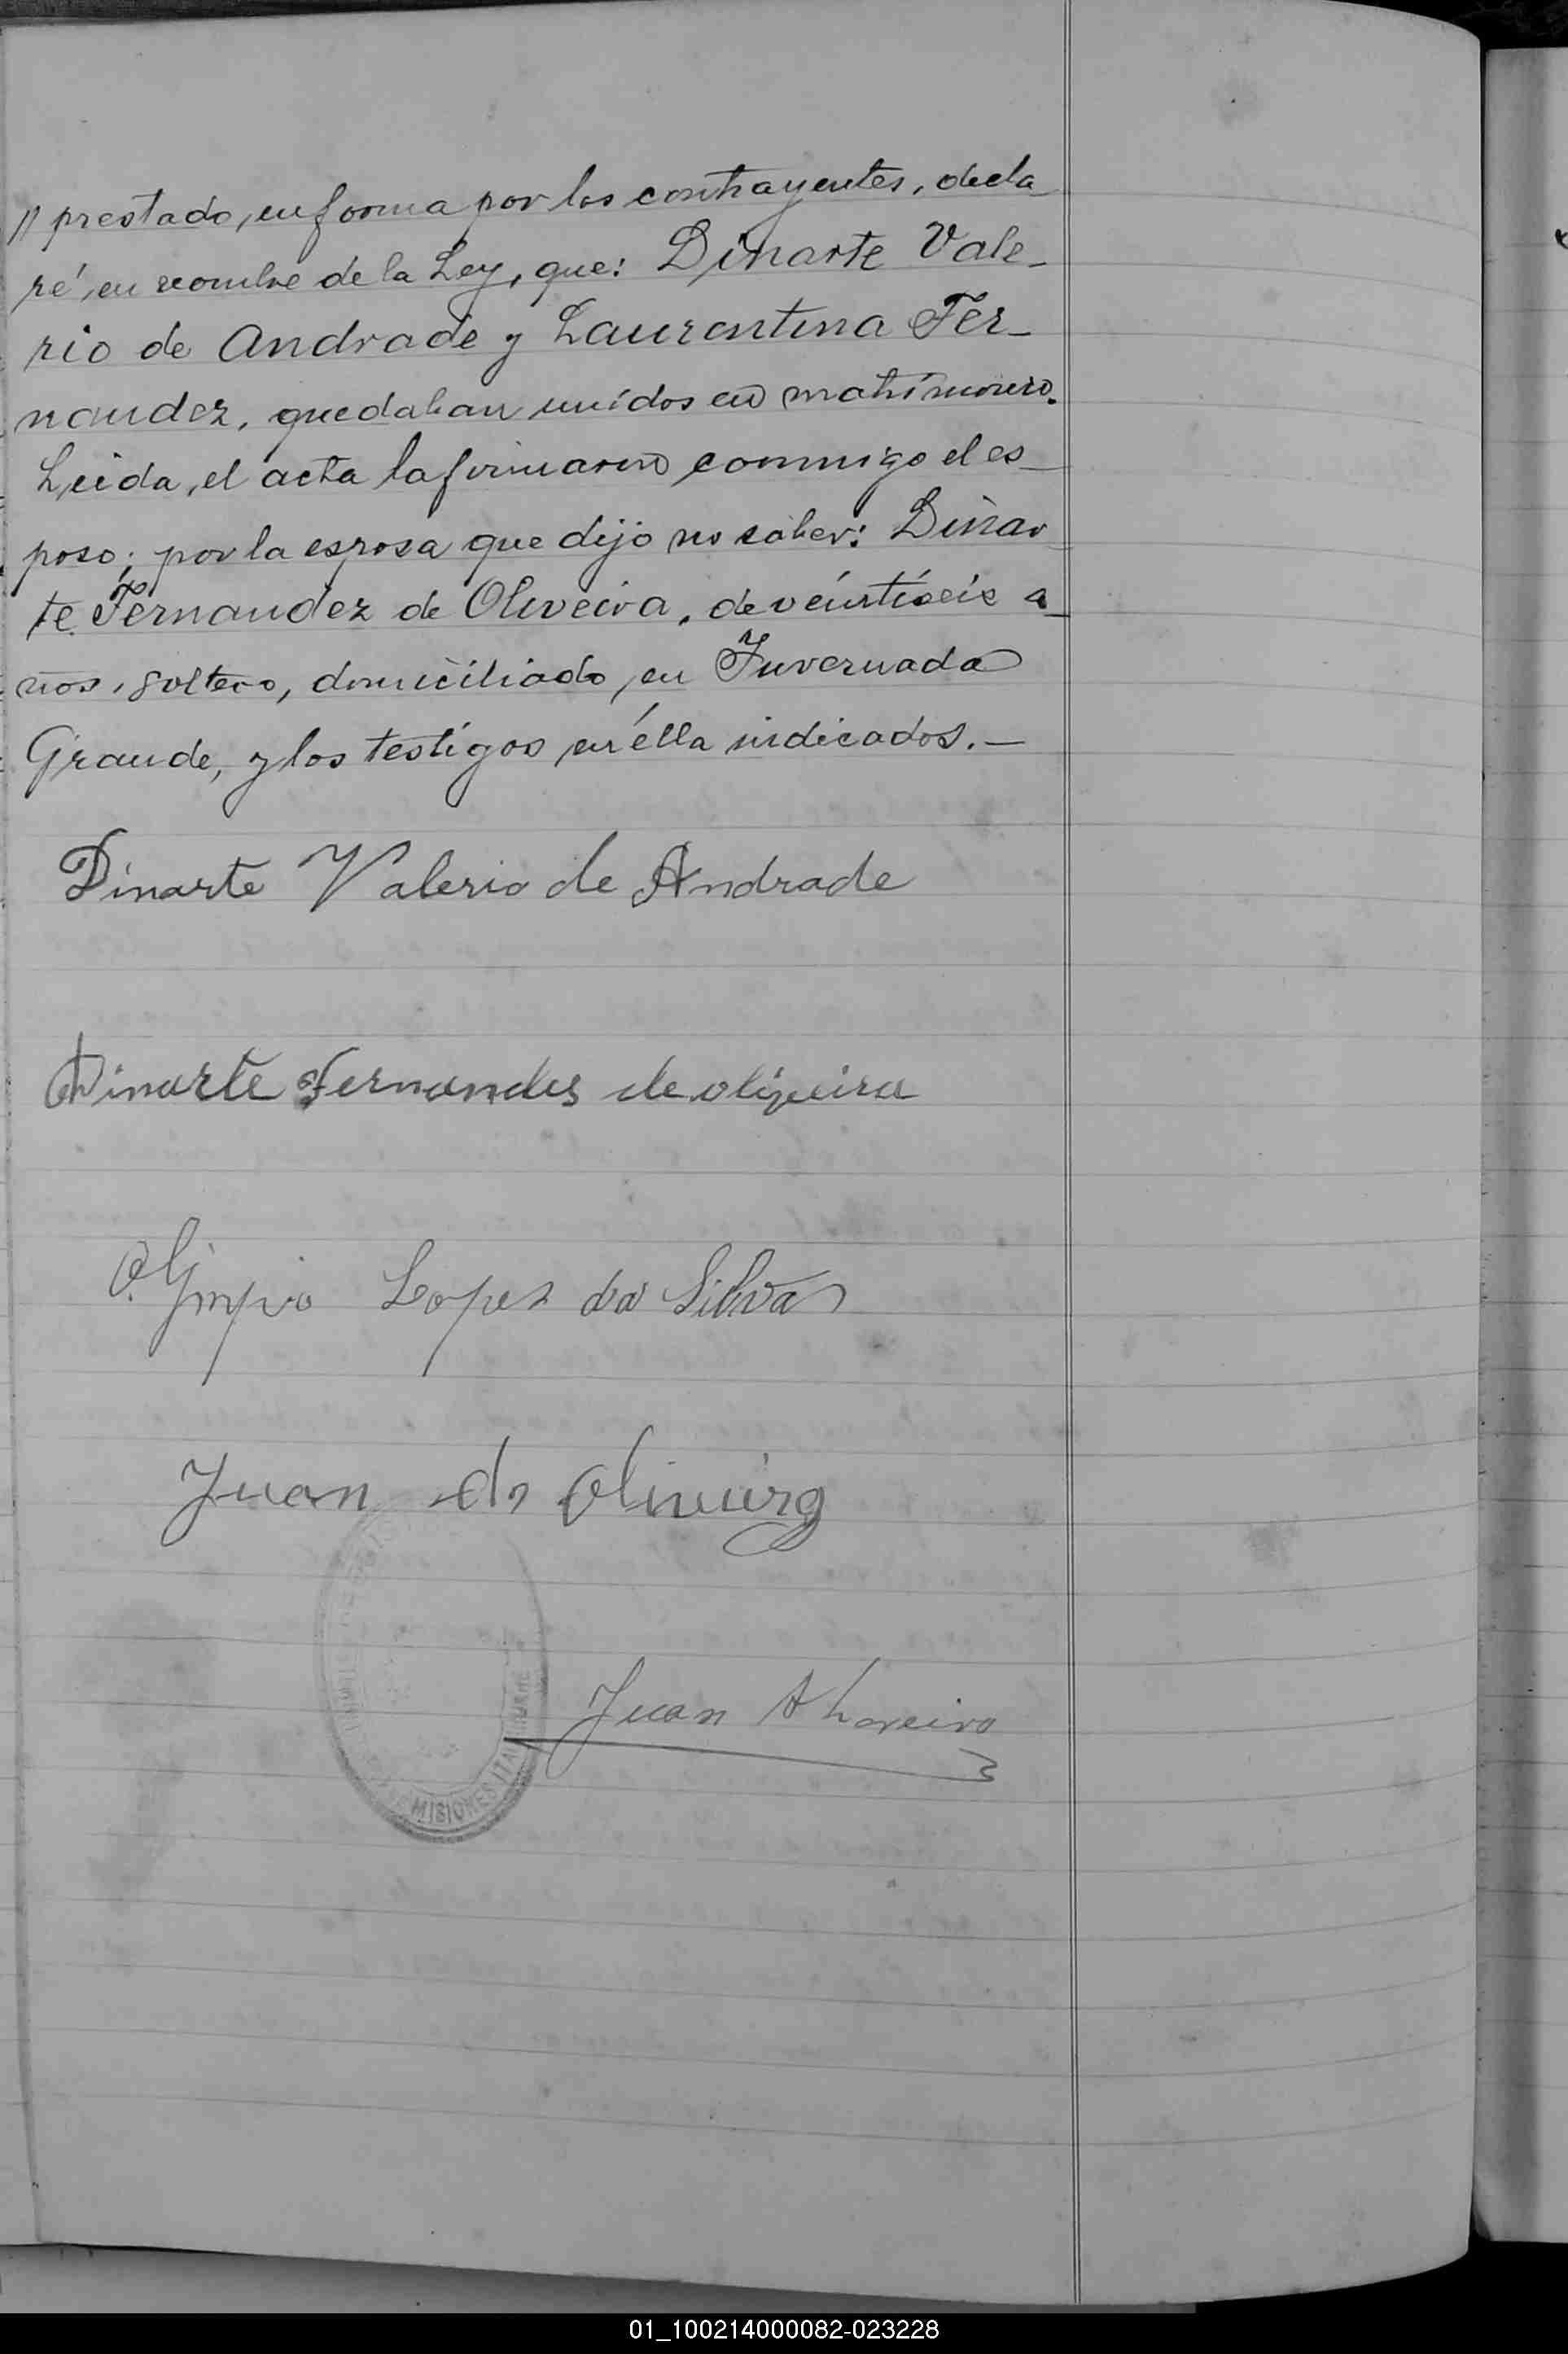 // prestado, en forma por los contrayentes, decla_
ré, en nombre de la Ley, que: Dinarte Vale_
rio de Andrade y Laurentina Fer_
nandez, quedaban unidos en matrimonio.
Leida, el acta la firmaron conmigo el es_
poso; por la esposa que dijo no saber: Dinar_
te Fernandez de Oliveira, de veintiseis a_
ños, soltero, domiciliado, en Invernada
Grande, y los testigos en élla indicados.—
Dinarte Valerio de Andrade
Dinarte Fernandes de oliveira
Olimpio Lopes da Silva
Juan de Oliveira
Juan A
MISIONES ITA
01_100214000082-023228